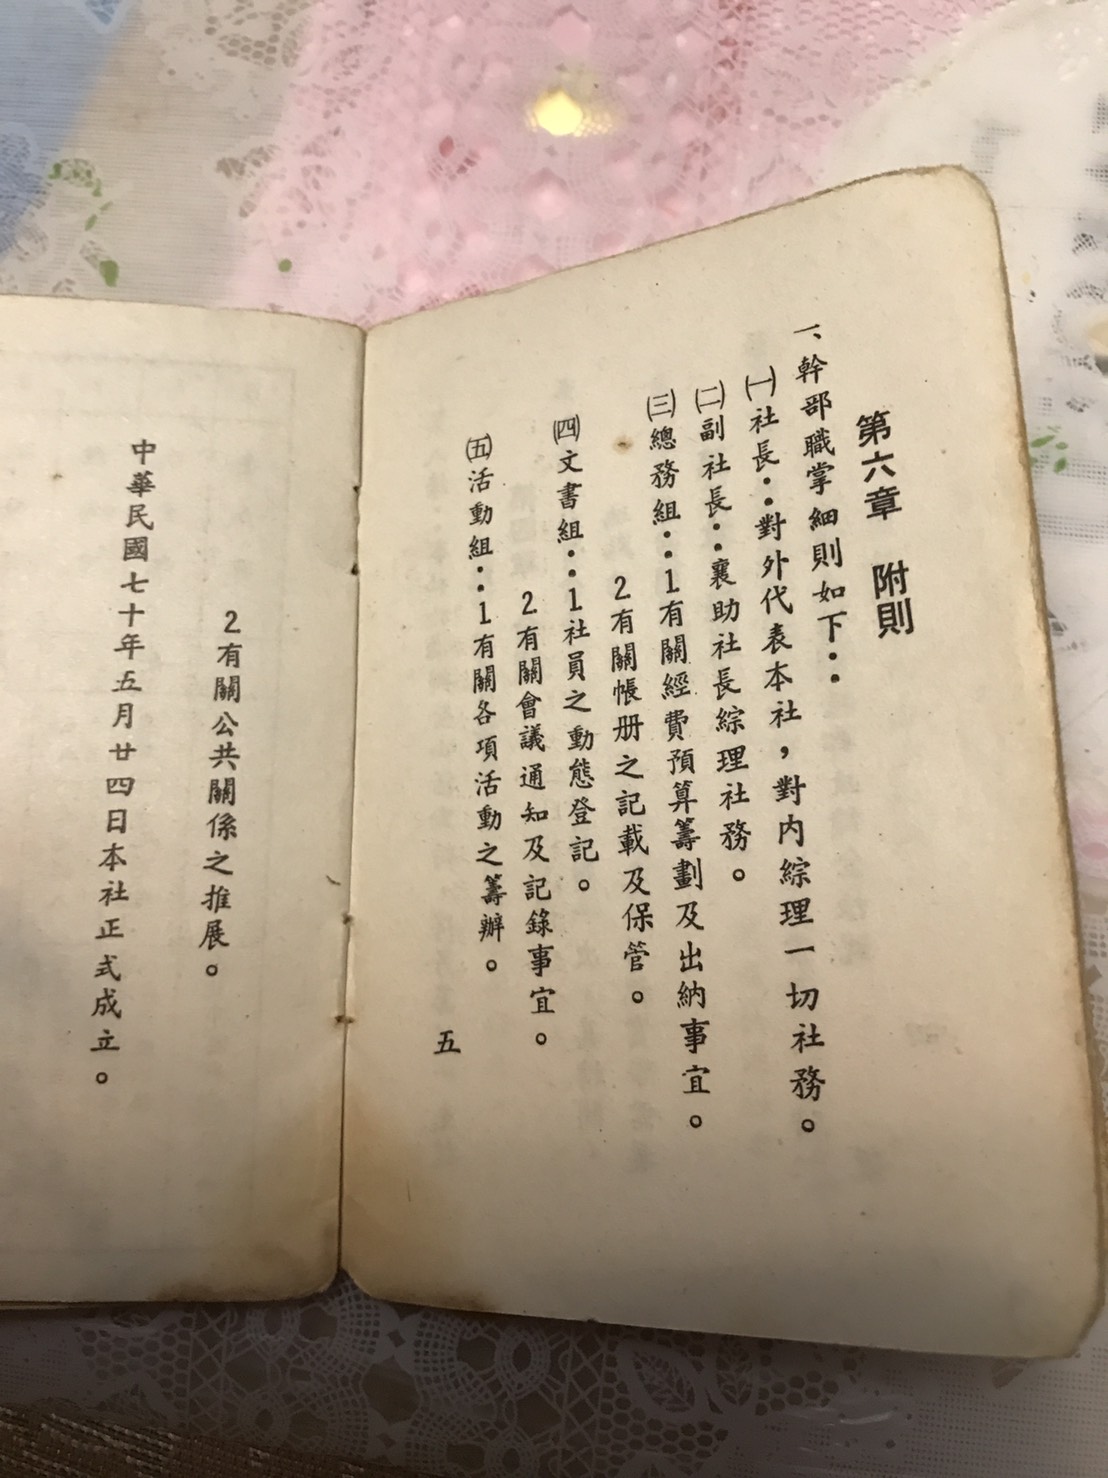 第六章　附則
一、幹部職掌細則如下：
㈠社長：對外代表本社，對內綜理一切社務。
㈡副社長：襄助社長綜理社務。
㈢總務組：1有關經費預算籌劃及出納事宜。
2有關帳册之記載及保管。
㈣文書組：1社員之動態登記。
2有關會議通知及記錄事宜。
㈤活動組：1有關各項活動之籌辦。
五
2有關公共關係之推展。
中華民國七十年五月廿四日本社正式成立。